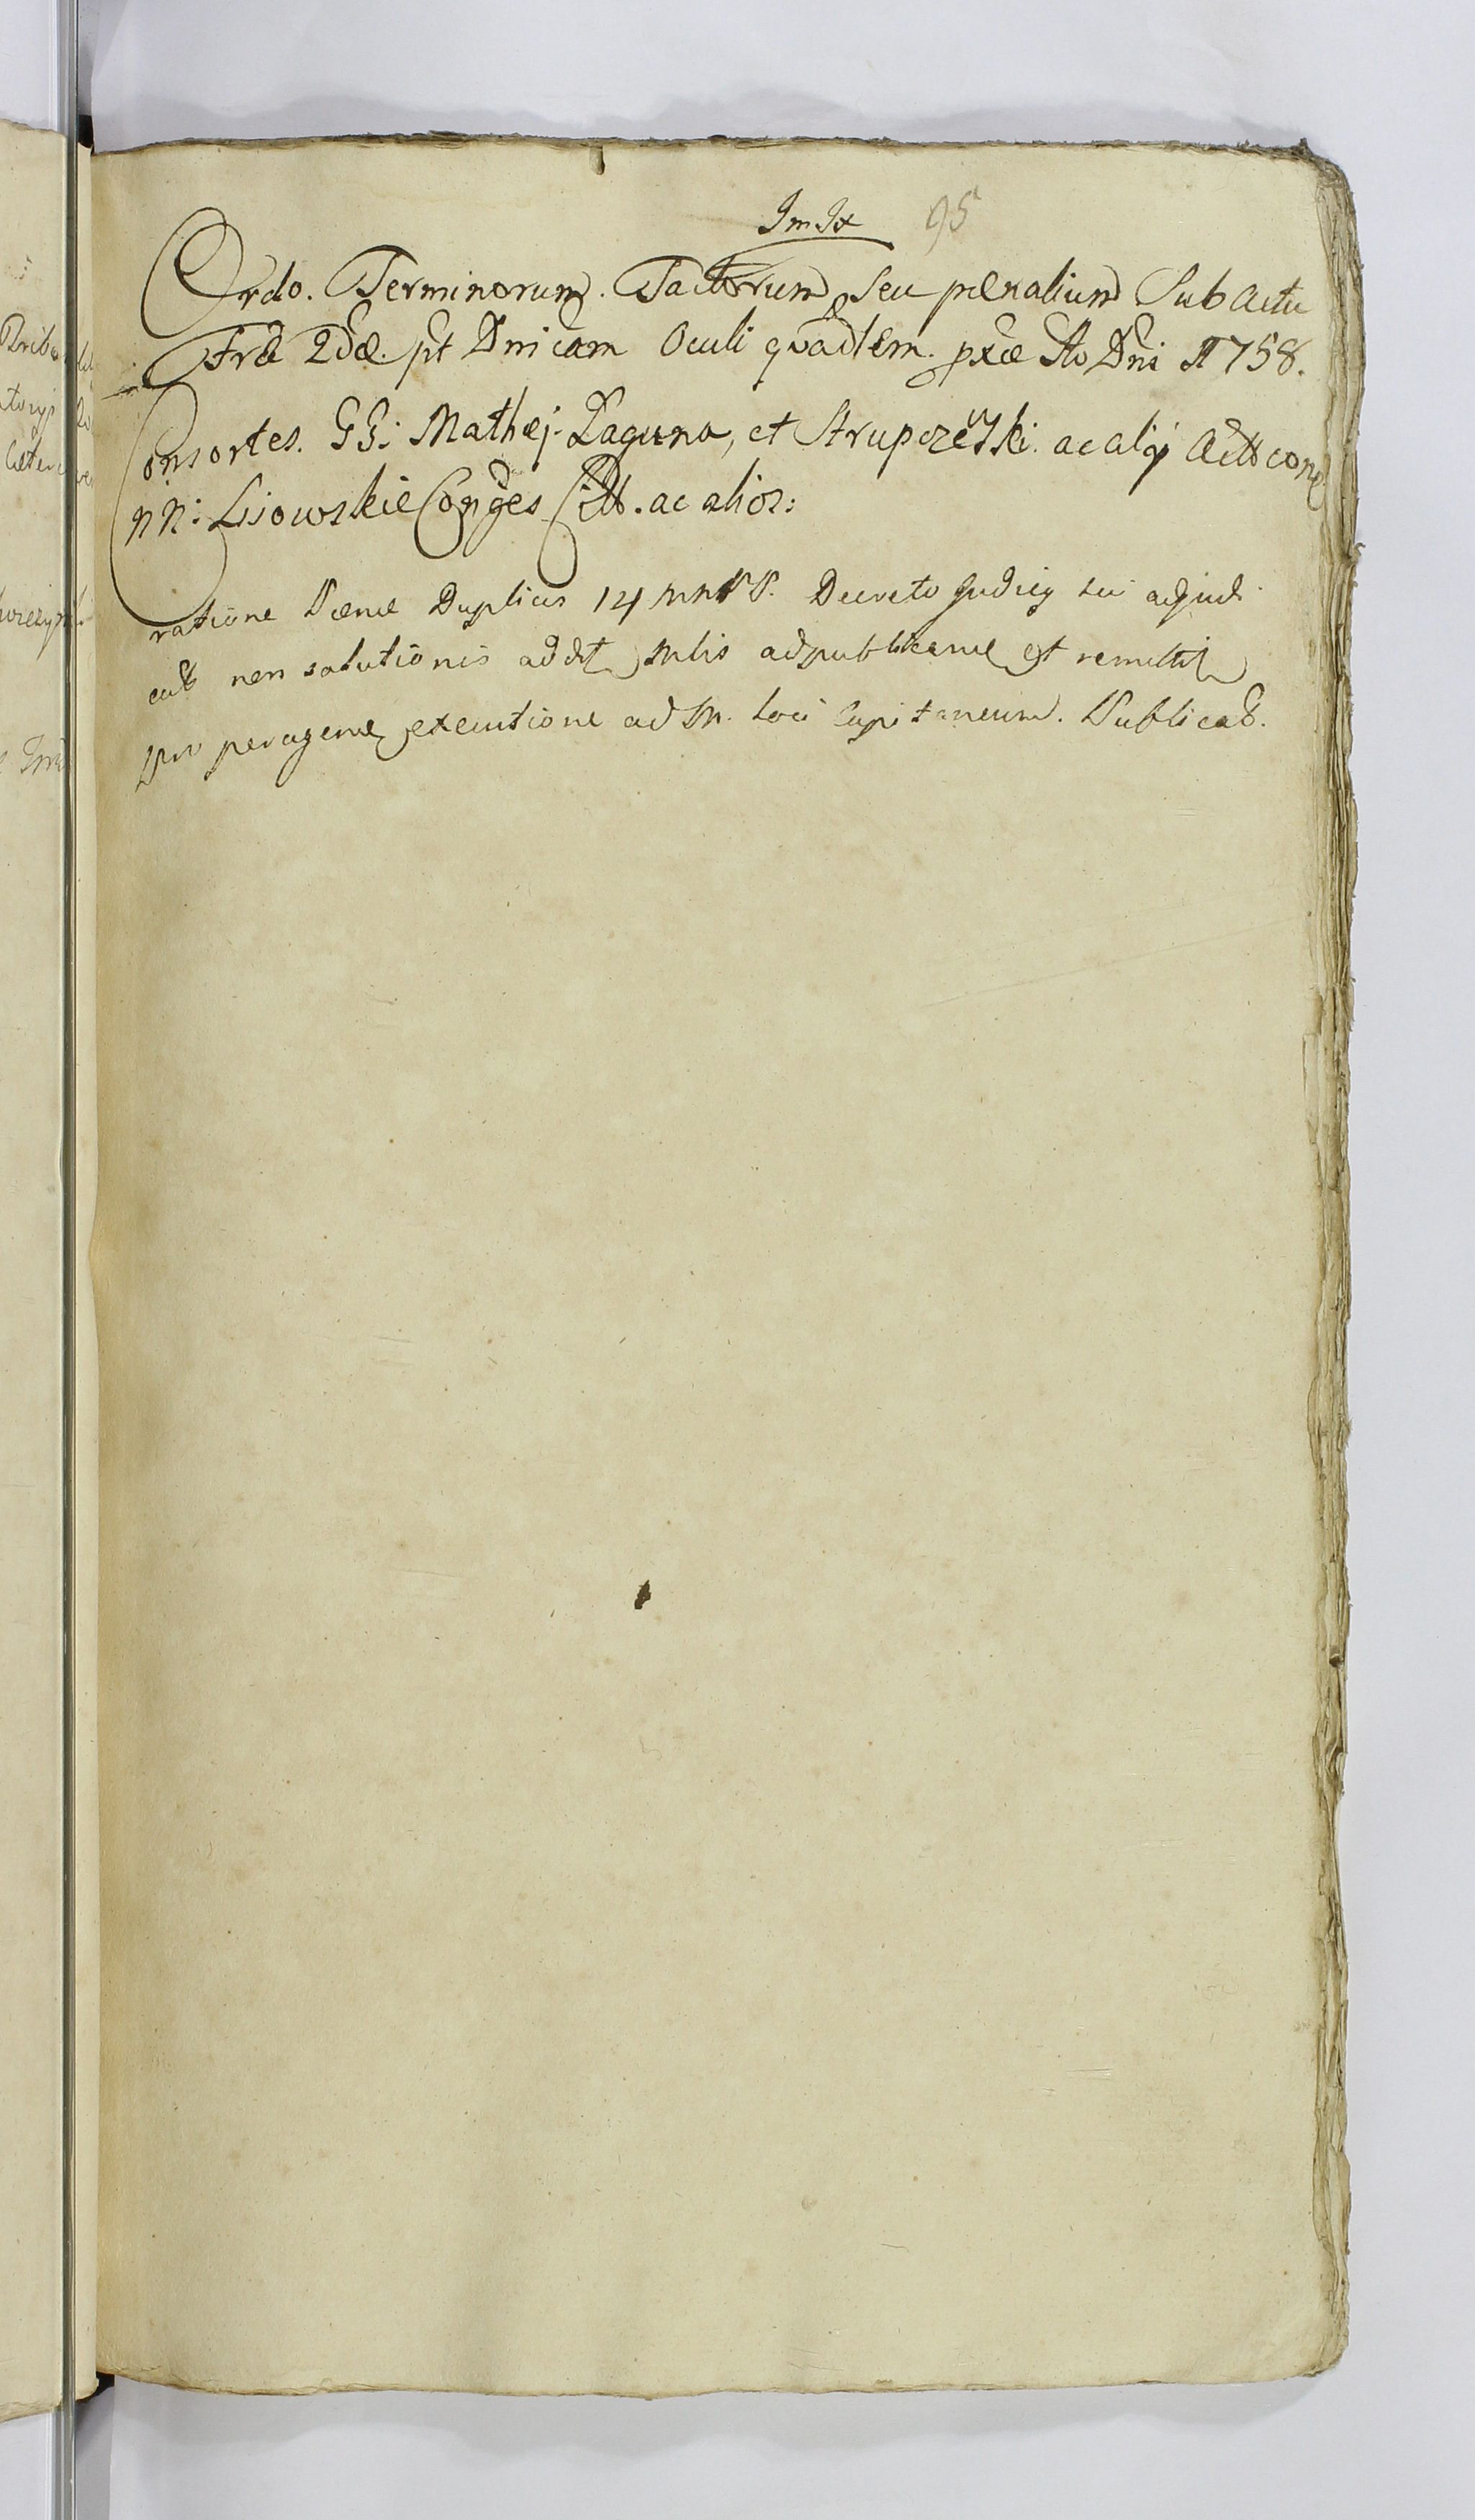 Im Ix 95
Ordo. Terminorum. Tactorum seu pœnalium Sub actu
Fra 2dæ. pt Dnicam Oculi quadlem. pxæ Ao Dni 1758.
Consortes. GG: Mathej Laguna, et Strupczewski. ac alij Actt con
NN: Lisowskie Conges Citt. ac alios:
ratione Pænæ Duplicis 14 mnPP. Decreto Judicij sui adjud
cat non solutionis addit mlis ad publicand et remittit
pro peragend executione ad M. loci Capitaneum. Publicat.